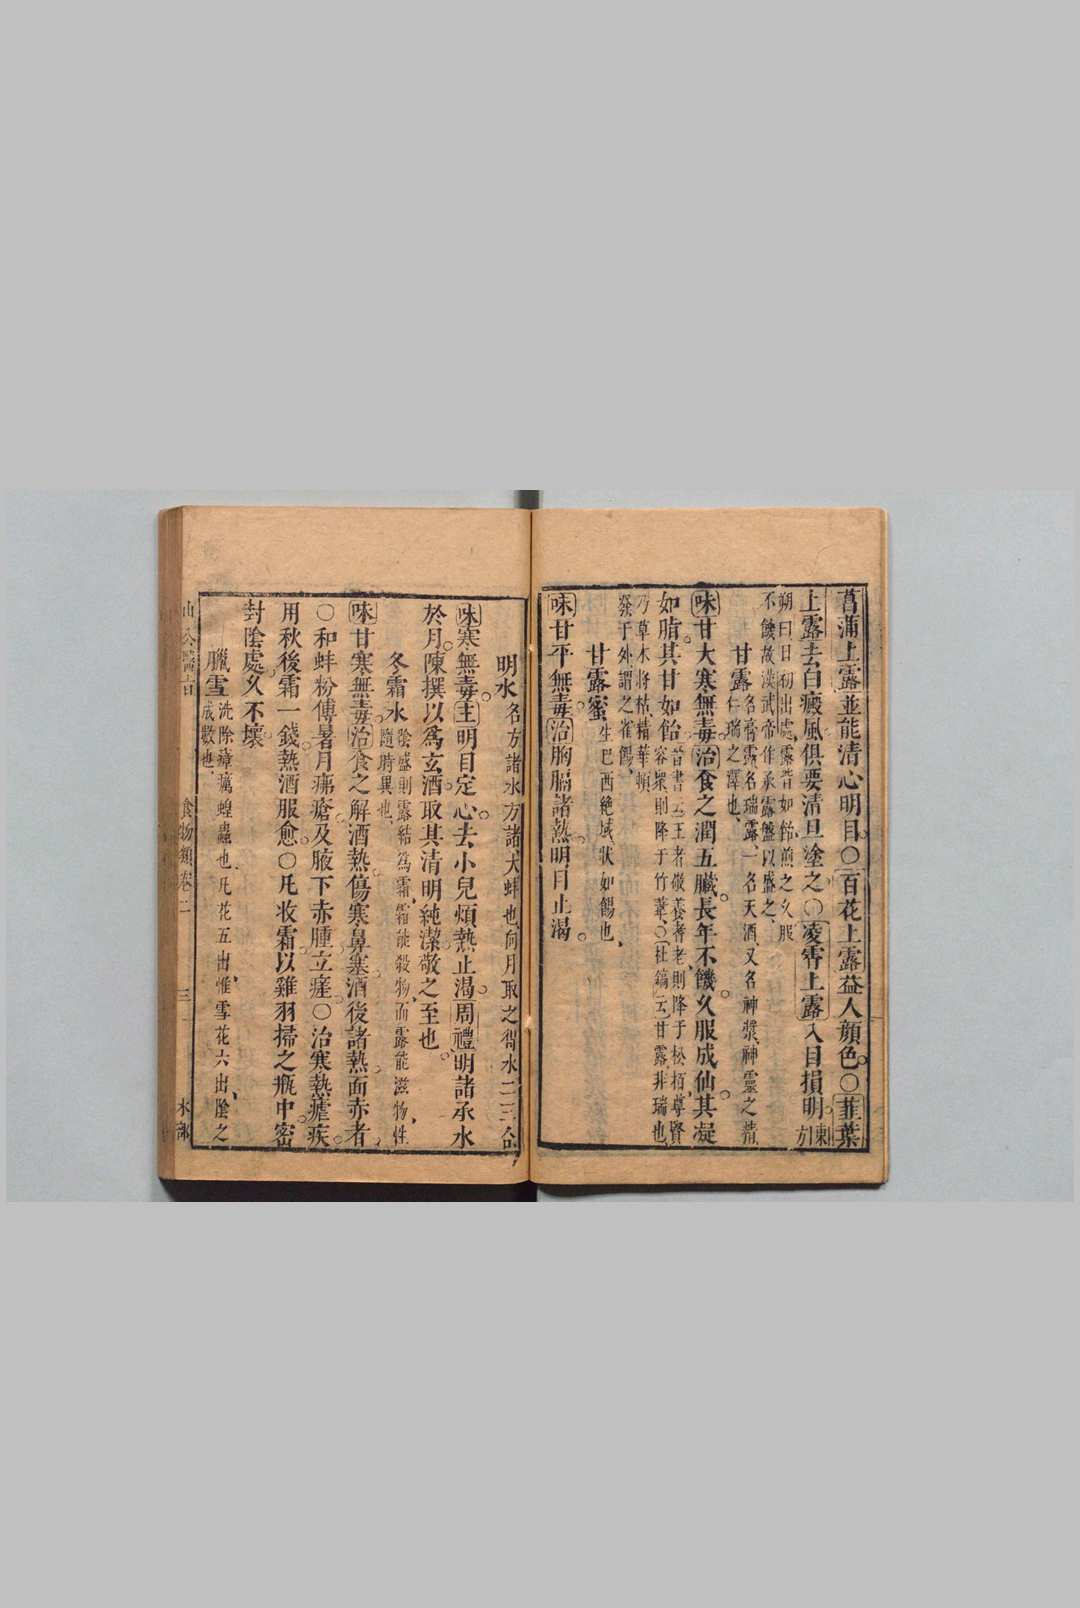 菖蒲上露並能清心明目○百花上露益人顔色○韮葉
上露去白癜風俱要清旦塗之○凌霄上露入目損明東方
朔曰日初出處露皆如飴煎之久服
不饑故漢武帝作承露盤以盛之
甘露名膏露名瑞露一名天酒又名神漿神靈之精
仁瑞之澤也
味甘大寒無毒治食之潤五臟長年不饑久服成仙其凝
如脂其甘如飴晉書云王者敬養耆老則降于松栢尊賢
容衆則降于竹葦○杜鎬云甘露非瑞也
乃草木將枯精華頓
發于外謂之雀餳
甘露蜜生巴西絶域状如餳也
味甘平無毒治胸膈諸熱明目止渴
明水名方諸水方諸大蚌也向月取之得水二三合
味寒無毒主明目定心去小兒煩熱止渴周禮明諸承水
於月陳撰以爲玄酒取其清明純潔敬之至也
冬霜水陰盛則露結為霜霜能殺物而露能滋物性
隨時異也
味甘寒無毒治食之解酒熱傷寒鼻塞酒後諸熱面赤者
○和蚌粉傅暑月疿瘡及腋下赤腫立瘥○治寒熱瘧疾
用秋後霜一錢熱酒服愈○凡收霜以雞羽掃之瓶中密
封陰處久不壞
臘雪洗除瘴癘蝗蟲也凡花五出惟雪花六出陰之
成數也
食物類卷二 三 水部